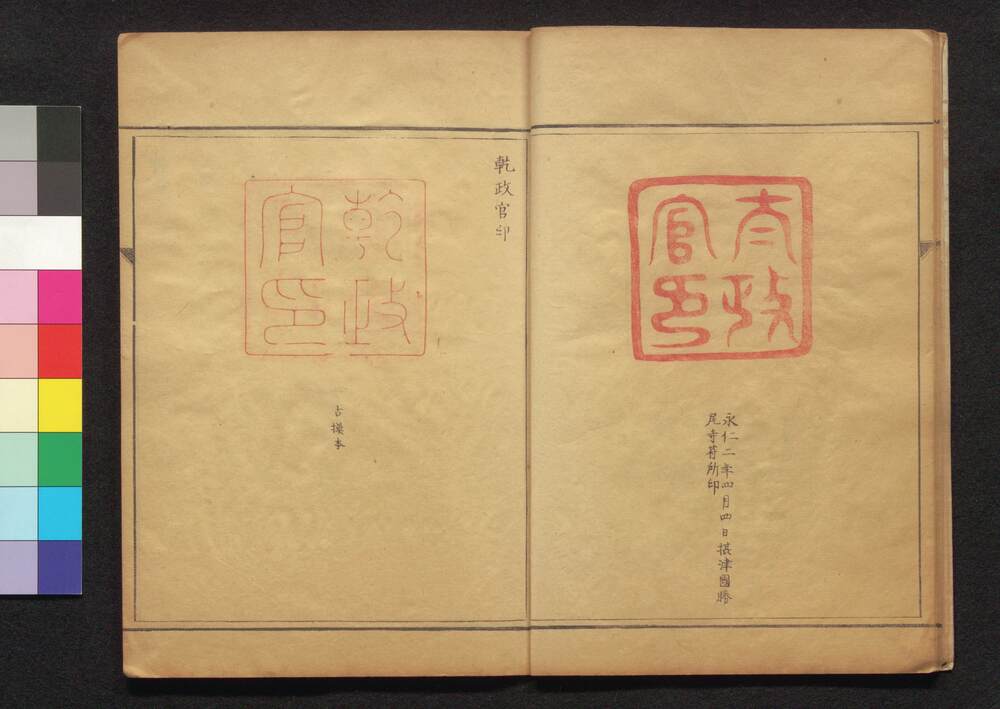 太政
官印
永仁二年四月四日摂津國勝
尾寺符所印
乾政官印
乾政
官印
古摸本